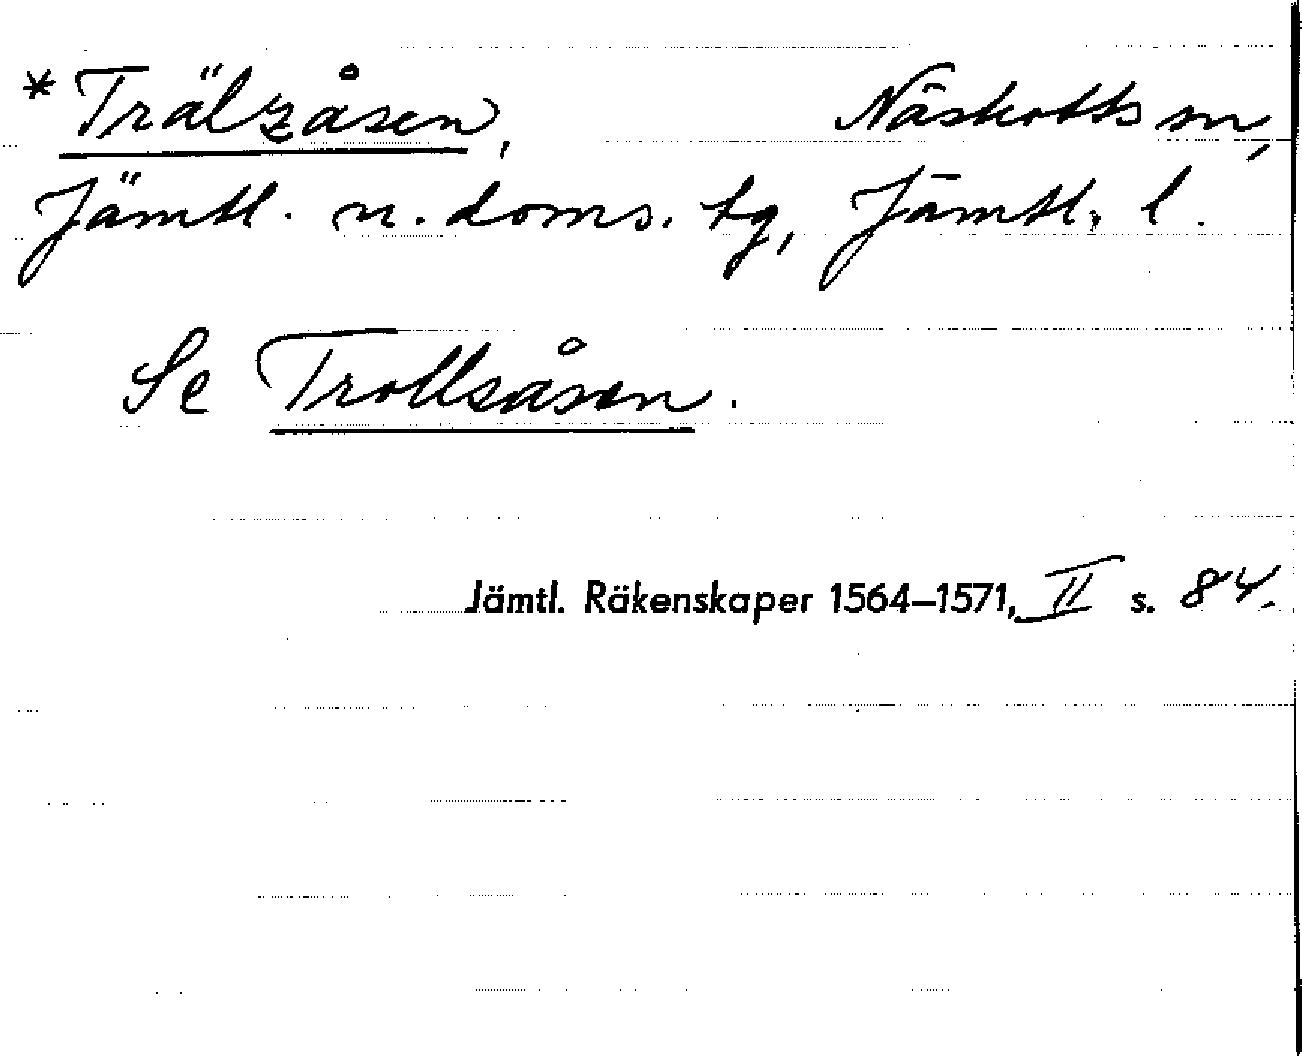 * Trälzåsen, Näskotts sn,
Jämtl. n. doms. tg, Jämtl. l.
Se Trollsåsen.
Jämtl. Räkenskaper 1564–1571, II s. 84.